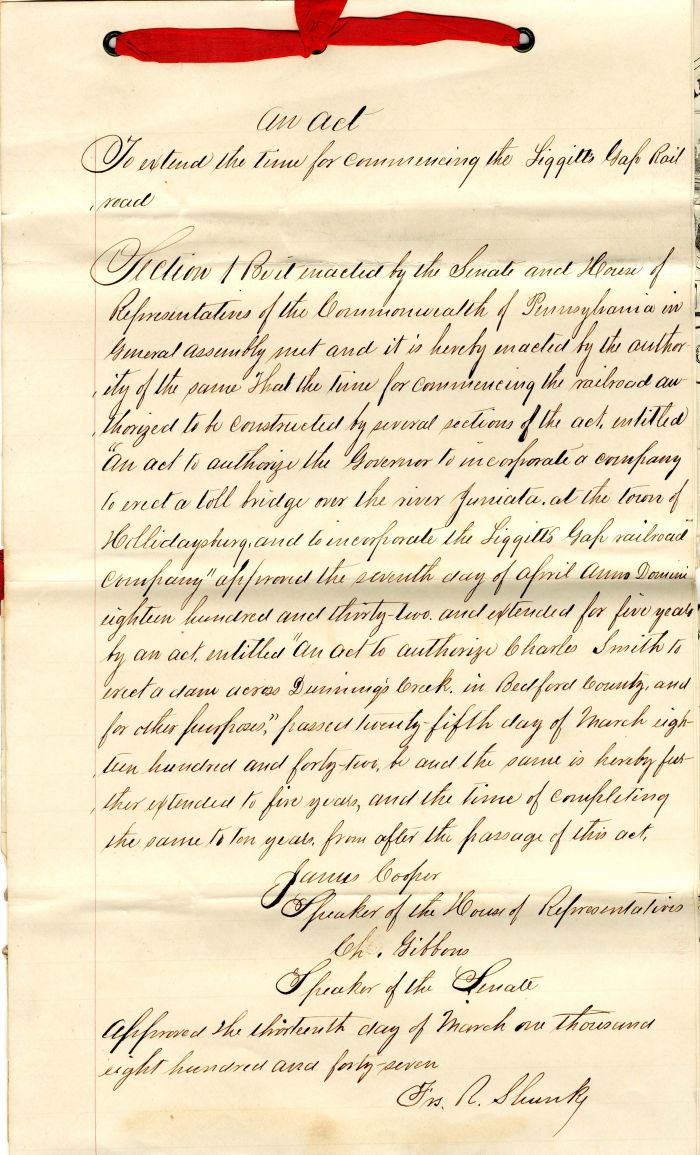 An Act
To extend the time for commencing the Liggitts Gap Rail
road
Section 1 Be it enacted by the Senate and House of
Representatives of the Commonwealth of Pennsylvania in
General Assembly met and it is hereby enacted by the author-
ity of the same That the time for commencing the railroad au-
thorized to be constructed by several sections of the act, entitled
"An act to authorize the Governor to incorporate a company
to erect a toll bridge over the river Juniata, at the town of
Hollidaysburg, and to incorporate the Liggitt's Gap railroad
company" approved the seventh day of April Anno Domini
eighteen hundred and thirty-two, and extended for five years
by an act, entitled "An act to authorize Charles Smith to
erect a dam across Dunning's Creek, in Bedford County, and
for other purposes," passed twenty-fifth day of March eigh-
teen hundred and forty-two, be and the same is hereby fur-
ther extended to five years, and the time of completing
the same to ten years, from after the passage of this act.
James Cooper
Speaker of the House of Representatives
Ch. Gibbons
Speaker of the Senate
Approved the thirteenth day of March one thousand
eight hundred and forty-seven
Frs. R. Shunk